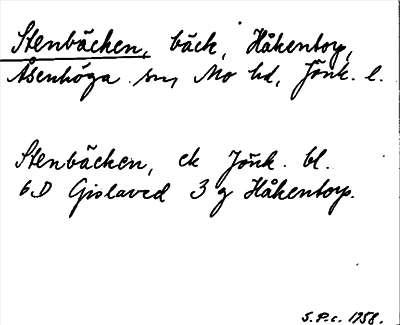 Stenbäcken, bäck, Håkentorp,
Åsenhöga sn, Mo hd, Jönk. l.
Stenbäcken, ek Jönk. bl.
6D Gislaved 3 g Håkentorp.
S.P.c. 1958.